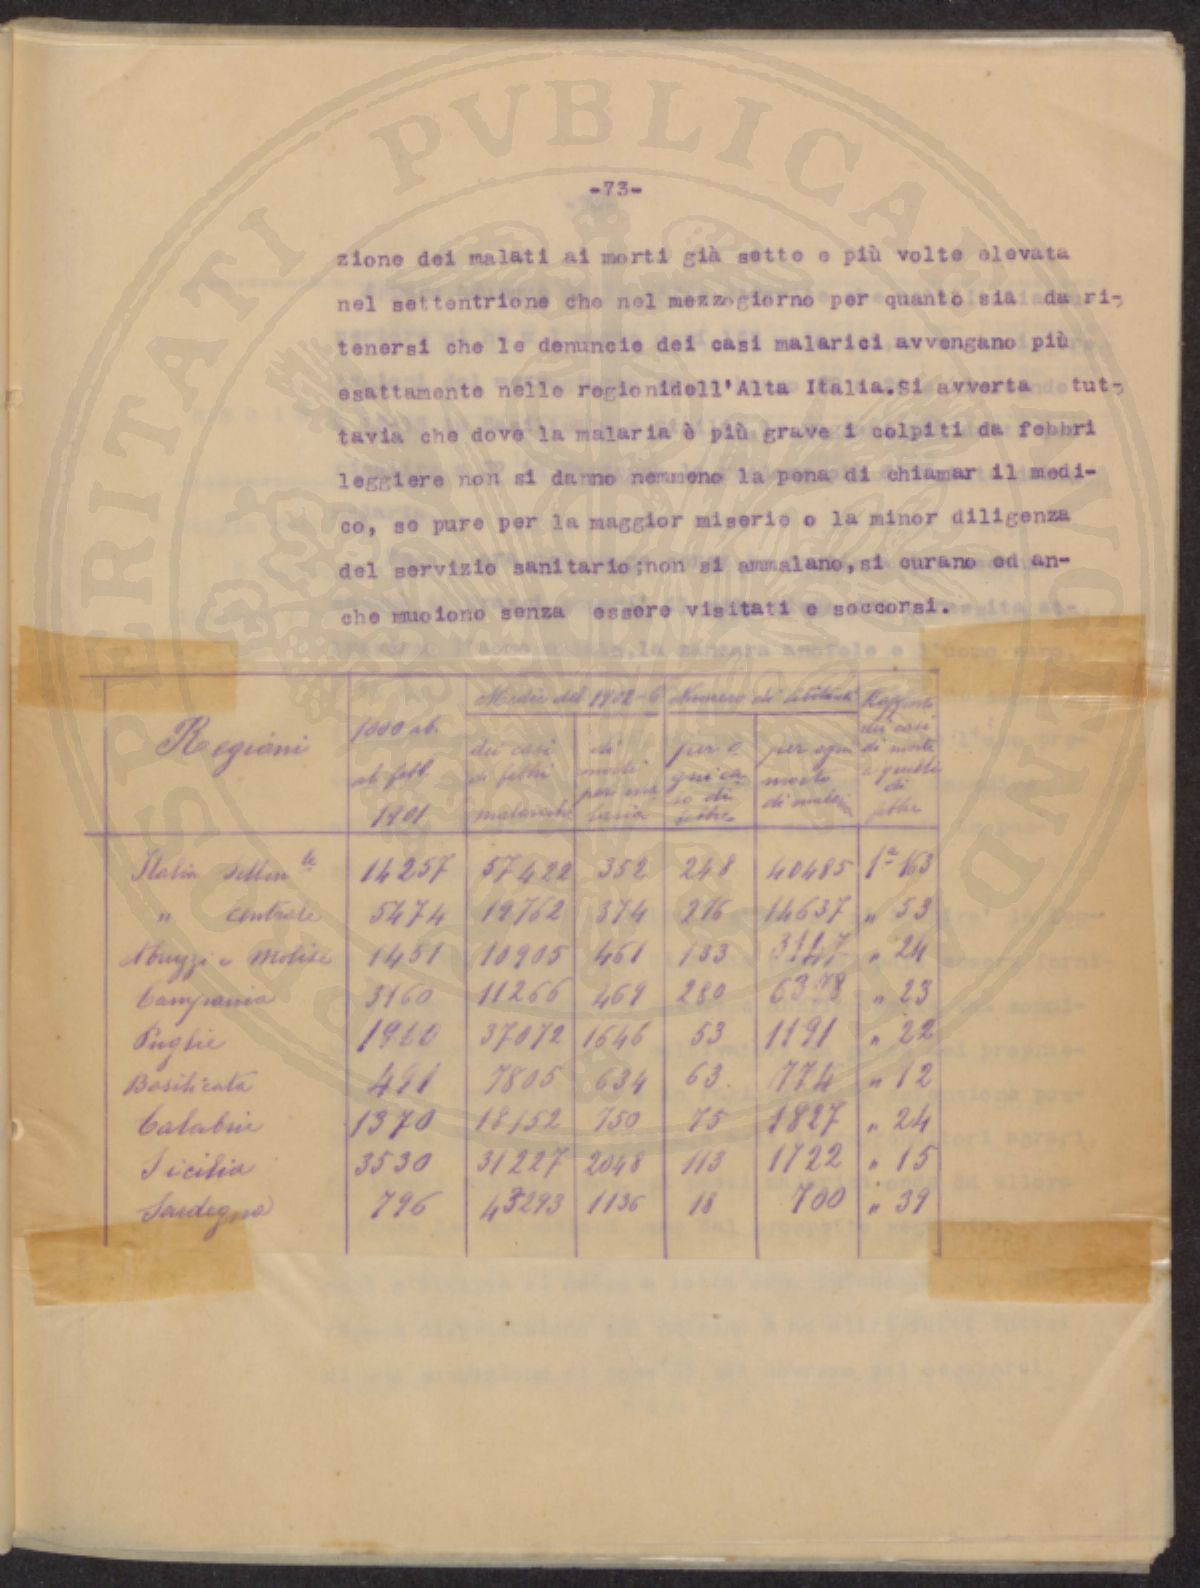 -73-
zione dei malati ai morti già sette e più volte elevata
nel settentrione che nel mezzogiorno per quanto sia da ri-
tenersi che le denuncie dei casi malarici avvengano più
esattamente nelle regionidell'Alta Italia.Si avverta tut-
tavia che dove la malaria è più grave i colpiti da febbri
leggiere non si danno nemmeno la pena di chiamar il medi-
co, se pure per la maggior miserie o la minor diligenza
del servizio sanitario;non si ammalano,si curano ed an-
che muoiono senza essere visitati e soccorsi.
Regioni 1000 ab. al febb. 1901 Medie del 1902-6 Numero di abitanti Rapporto
dei casi di febbri malariche di morti per malaria per ogni caso di febbre per ogni morto di malaria dei casi di morte a quelli di febbre
Italia Setten.le 14257 57422 352 248 40485 1 a 163
" centrale 5474 19762 374 276 14637 " 53
Abruzzi e Molise 1451 10905 461 133 3147 " 24
Campania 3160 11266 469 280 6398 " 23
Puglie 1960 37072 1646 53 1191 " 22
Basilicata 491 7805 634 63 774 " 12
Calabrie 1370 18152 750 75 1827 " 24
Sicilia 3530 31227 2048 113 1722 " 15
Sardegna 796 43293 1136 18 700 " 39
SPERITATI PVBLICAE